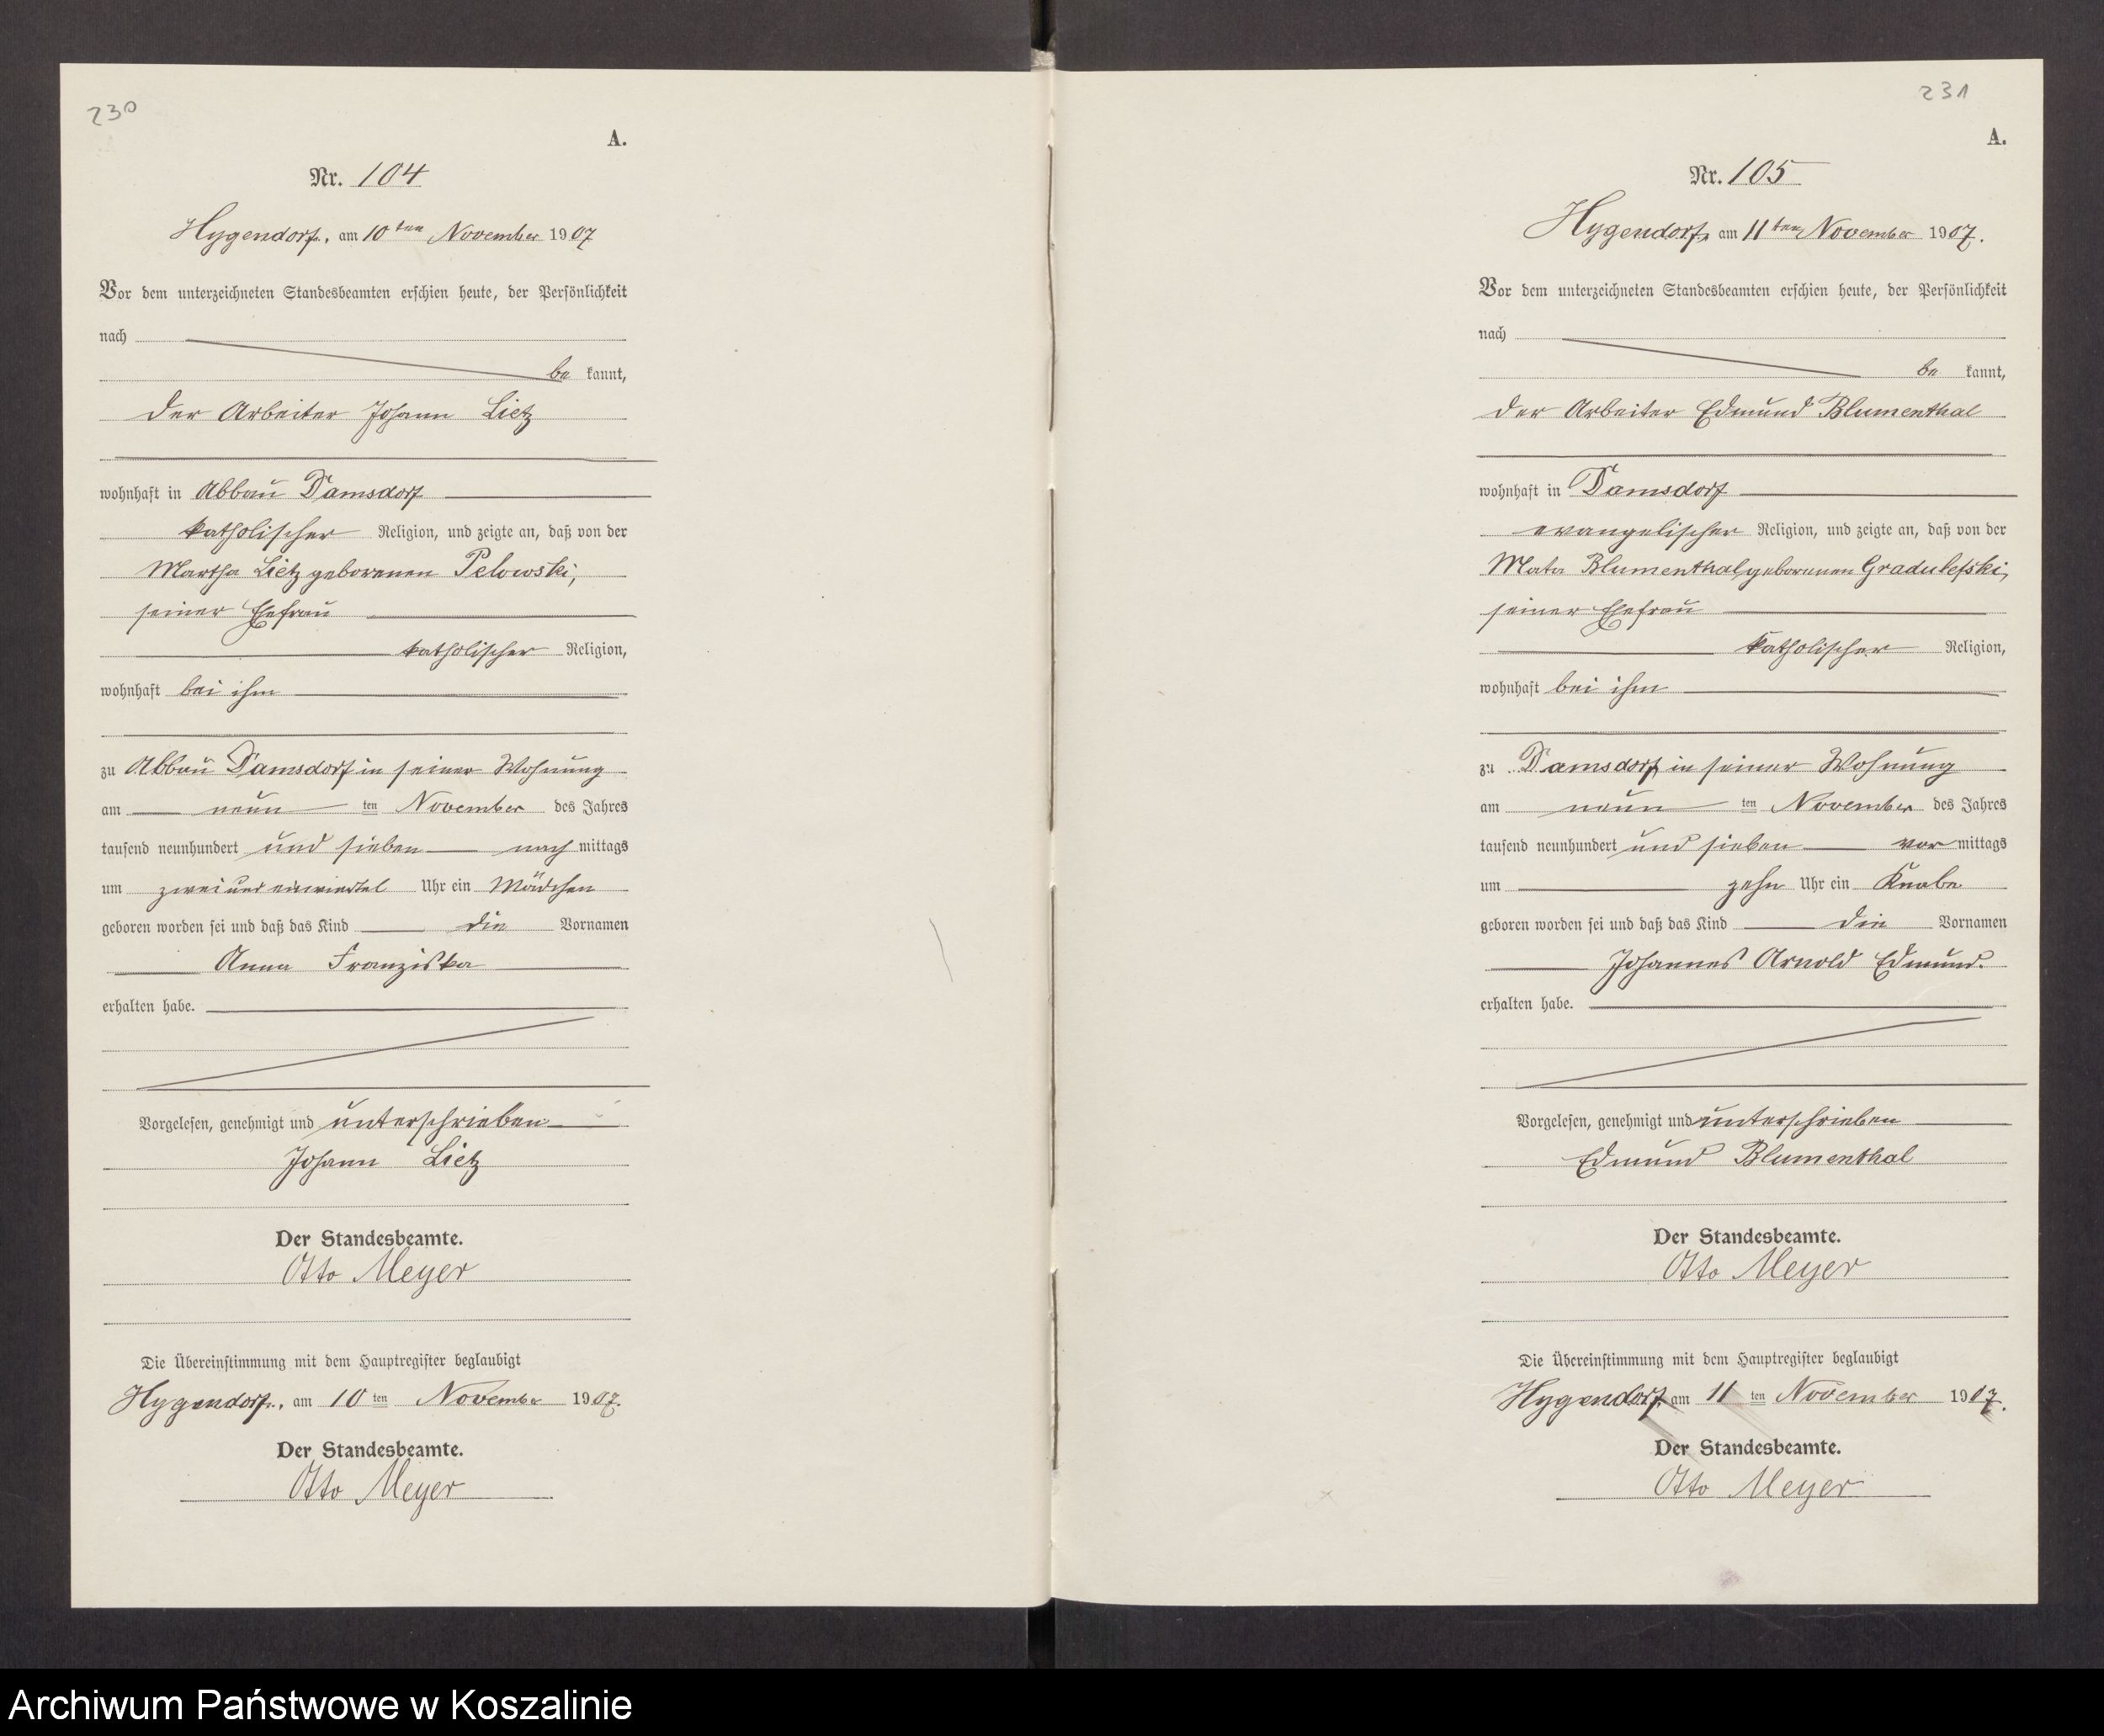 230
A.
Nr. 104
Hygendorf, am 10ten November 1907
Vor dem unterzeichneten Standesbeamten erschien heute, der Persönlichkeit
nach
be kannt,
der Arbeiter Johann Lietz
wohnhaft in Abbau Damsdorf
katholischer Religion, und zeigte an, daß von der
Martha Lietz geborenen Pelowski,
seiner Ehefrau
katholischer Religion,
wohnhaft bei ihm
zu Abbau Damsdorf in seiner Wohnung
am neun ten November des Jahres
tausend neunhundert und sieben nach mittags
um zwei und einviertel Uhr ein Mädchen
geboren worden sei und daß das Kind die Vornamen
Anna Franziska
erhalten habe.
Vorgelesen, genehmigt und unterschrieben
Johann Lietz
Der Standesbeamte.
Otto Meyer
Die Übereinstimmung mit dem Hauptregister beglaubigt
Hygendorf, am 10 ten November 1907.
Der Standesbeamte.
Otto Meyer
231
A.
Nr. 105
Hygendorf, am 11ten November 1907.
Vor dem unterzeichneten Standesbeamten erschien heute, der Persönlichkeit
nach
be kannt,
der Arbeiter Edmund Blumenthal
wohnhaft in Damsdorf
evangelischer Religion, und zeigte an, daß von der
Meta Blumenthal, geborenen Gradulefski,
seiner Ehefrau
katholischer Religion,
wohnhaft bei ihm
zu Damsdorf, in seiner Wohnung
am neun ten November des Jahres
tausend neunhundert und sieben vor mittags
um zehn Uhr ein Knabe
geboren worden sei und daß das Kind die Vornamen
Johannes Arnold Edmund.
erhalten habe.
Vorgelesen, genehmigt und unterschrieben
Edmund Blumenthal
Der Standesbeamte.
Otto Meyer
Die Übereinstimmung mit dem Hauptregister beglaubigt
Hygendorf, am 11 ten November 1907.
Der Standesbeamte.
Otto Meyer
Archiwum Państwowe w Koszalinie